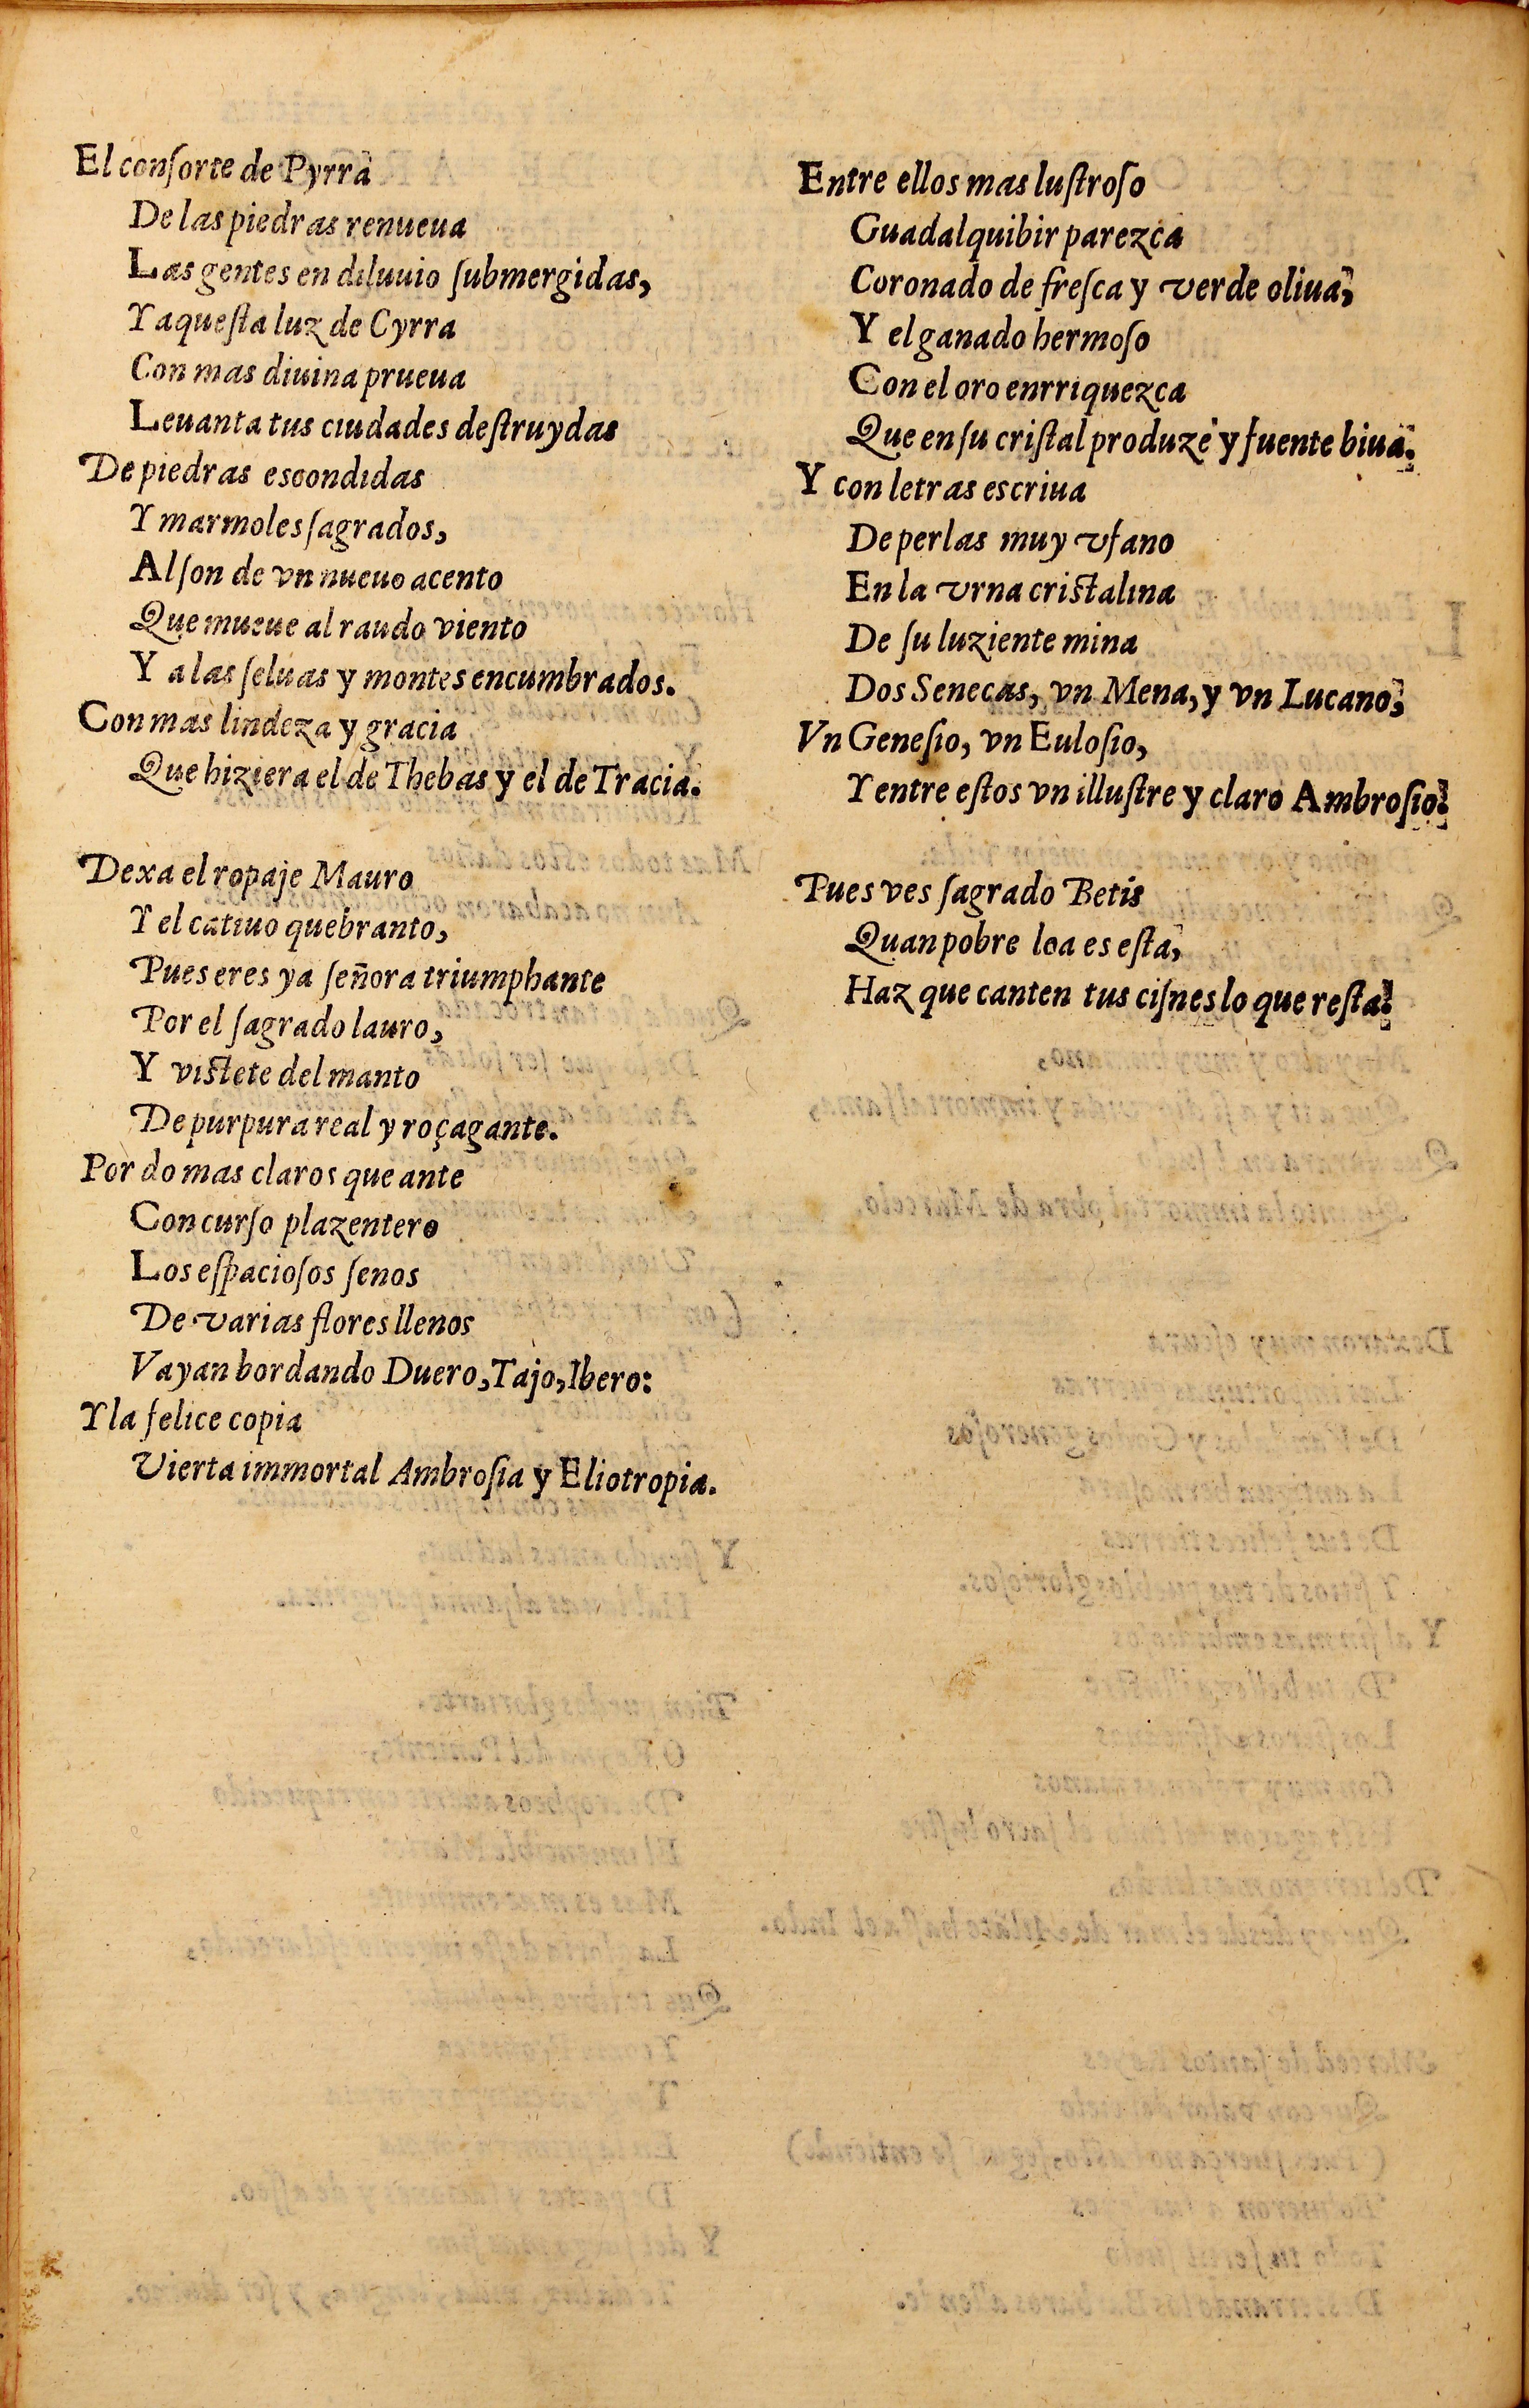 El conſorte de Pyrra
De las piedras renueua
Las gentes en diluuio ſubmergidas,
Y aqueſta luz de Cyrra
Con mas diuina prueua
Leuanta tus ciudades deſtruydas
De piedras escondidas
Y marmoles ſagrados,
Al ſon de vn nueuo acento
Que mueue al raudo viento
Y a las ſeluas y montes encumbrados.
Con mas lindeza y gracia
Que hiziera el de Thebas y el de Tracia.
Dexa el ropaje Mauro
Y el catiuo quebranto,
Pues eres ya ſeñora triumphante
Por el ſagrado lauro,
Y viſtete del manto
De purpura real y roçagante.
Por do mas claros que ante
Con curſo plazentero
Los eſpacioſos ſenos
De varias flores llenos
Vayan bordando Duero, Tajo, Ibero:
Y la felice copia
Vierta immortal Ambroſia y Eliotropia.
Entre ellos mas luſtroſo
Guadalquibir parezca
Coronado de freſca y verde oliua,
Y el ganado hermoſo
Con el oro enrriquezca
Que en ſu criſtal produze y fuente biua.
Y con letras escriua
De perlas muy vfano
En la vrna criſtalina
De ſu luziente mina
Dos Senecas, vn Mena, y vn Lucano,
Vn Geneſio, vn Euloſio,
Y entre eſtos vn illuſtre y claro Ambroſio.
Pues ves ſagrado Betis
Quan pobre loa es eſta,
Haz que canten tus ciſnes lo que reſta.